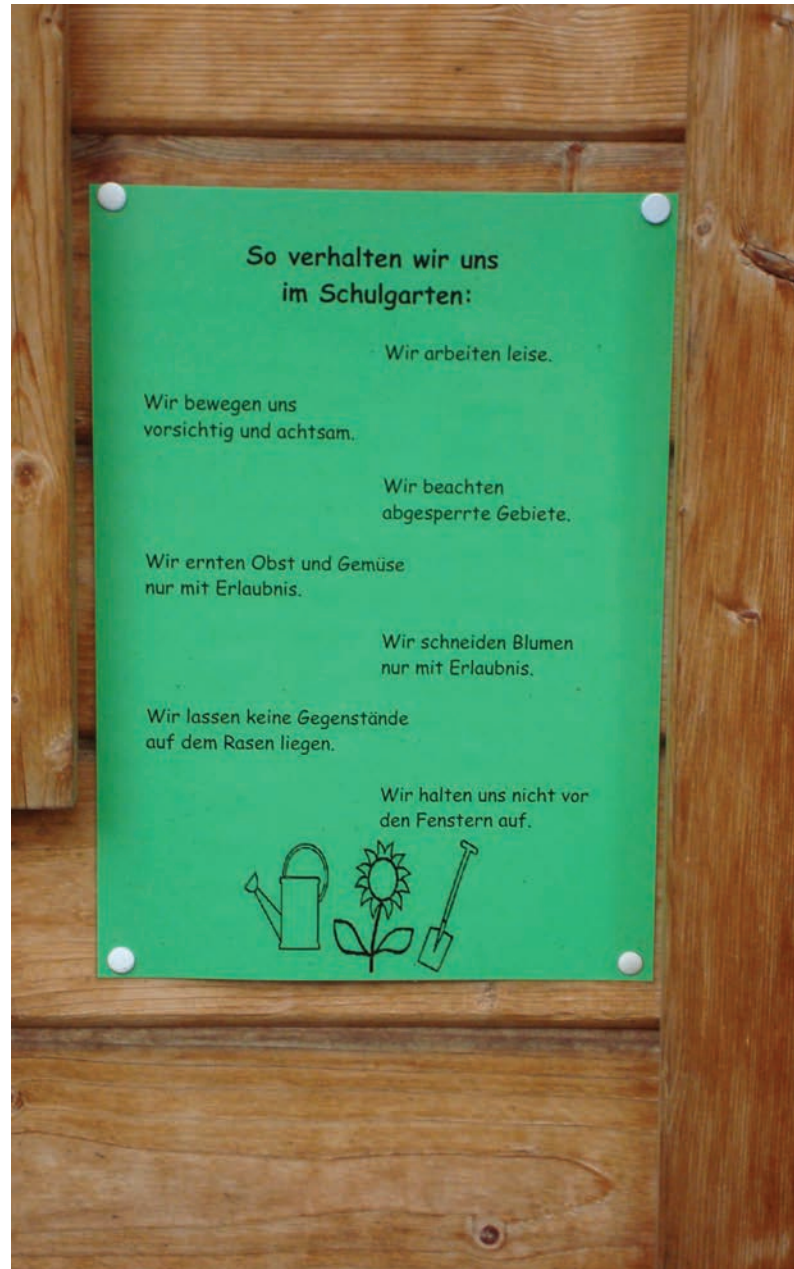 So verhalten wir uns
im Schulgarten:
Wir arbeiten leise.
Wir bewegen uns
vorsichtig und achtsam.
Wir beachten
abgesperrte Gebiete.
Wir ernten Obst und Gemüse
nur mit Erlaubnis.
Wir schneiden Blumen
nur mit Erlaubnis.
Wir lassen keine Gegenstände
auf dem Rasen liegen.
Wir halten uns nicht vor
den Fenstern auf.